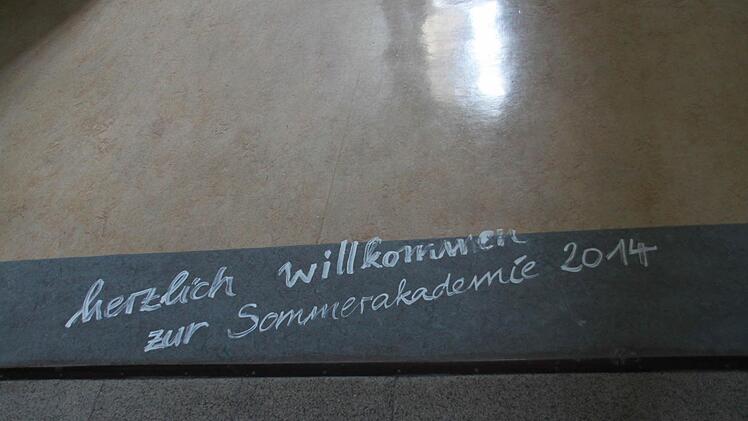 herzlich willkommen
zur Sommerakademie 2014